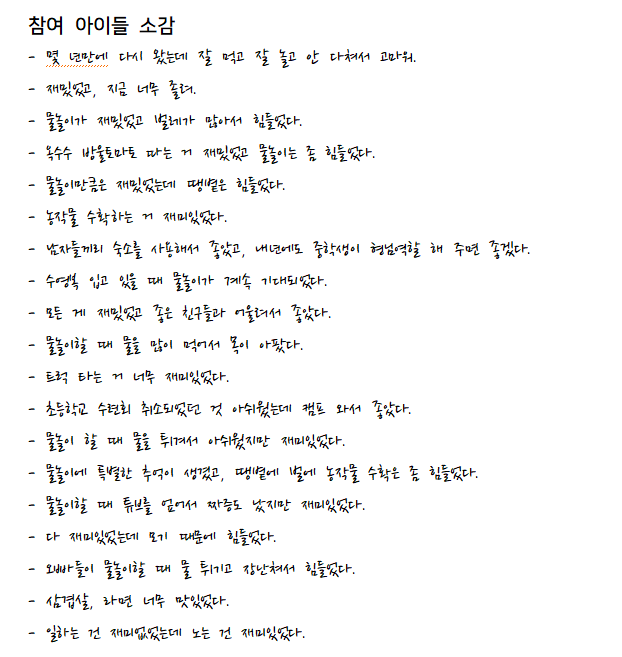 참여 아이들 소감
- 몇 년만에 다시 왔는데 잘 먹고 잘 놀고 안 다쳐서 고마워.
- 재밌었고, 지금 너무 졸려.
- 물놀이가 재밌었고 벌레가 많아서 힘들었다.
- 옥수수 방울토마토 따는 거 재밌었고 물놀이는 좀 힘들었다.
- 물놀이만큼은 재밌었는데 땡볕은 힘들었다.
- 농작물 수확하는 거 재미있었다.
- 남자들끼리 숙소를 사용해서 좋았고, 내년에도 중학생이 형님역할 해 주면 좋겠다.
- 수영복 입고 있을 때 물놀이가 계속 기대되었다.
- 모든 게 재밌었고 좋은 친구들과 어울려서 좋았다.
- 물놀이할 때 물을 많이 먹어서 목이 아팠다.
- 트럭 타는 거 너무 재미있었다.
- 초등학교 수련회 취소되었던 것 아쉬웠는데 캠프 와서 좋았다.
- 물놀이 할 때 물을 튀겨서 아쉬웠지만 재미있었다.
- 물놀이에 특별한 추억이 생겼고, 땡볕에 벌에 농작물 수확은 좀 힘들었다.
- 물놀이할 때 튜브를 엎어서 짜증도 났지만 재미있었다.
- 다 재미있었는데 모기 때문에 힘들었다.
- 오빠들이 물놀이할 때 물 튀기고 장난쳐서 힘들었다.
- 삼겹살, 라면 너무 맛있었다.
- 일하는 건 재미없었는데 노는 건 재미있었다.